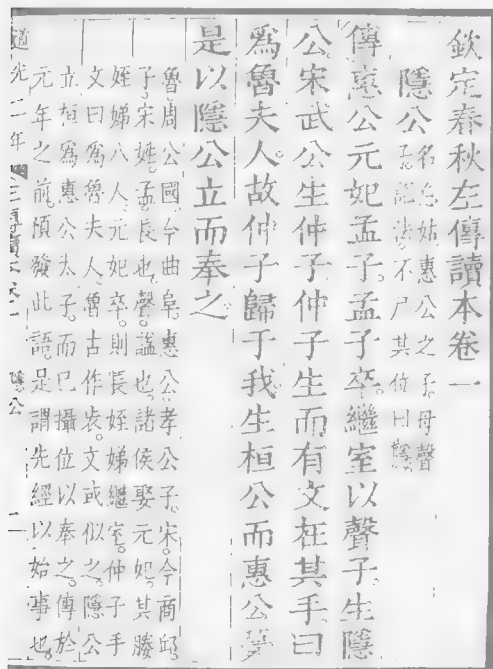 欽定春秋左傳讀本卷一
隱公名息姑惠公之子母聲
子謚法不尸其位曰隱
傳惠公元妃孟子孟子卒繼室以聲子生隱
公宋武公生仲子仲子生而有文在其手曰
爲魯夫人故仲子歸于我生桓公而惠公薨
是以隱公立而奉之
魯周公國今曲阜惠公孝公子宋今商邱
子宋姓孟長也聲謚也諸侯娶元妃其媵
姪娣八人元妃卒則長姪娣繼室仲子手
文曰爲魯夫人魯古作㫺文或似之隱公
立桓爲惠公太子而已攝位以奉之傳於
元年之前預發此語是謂先經以始事也
道光二年 隱公 一